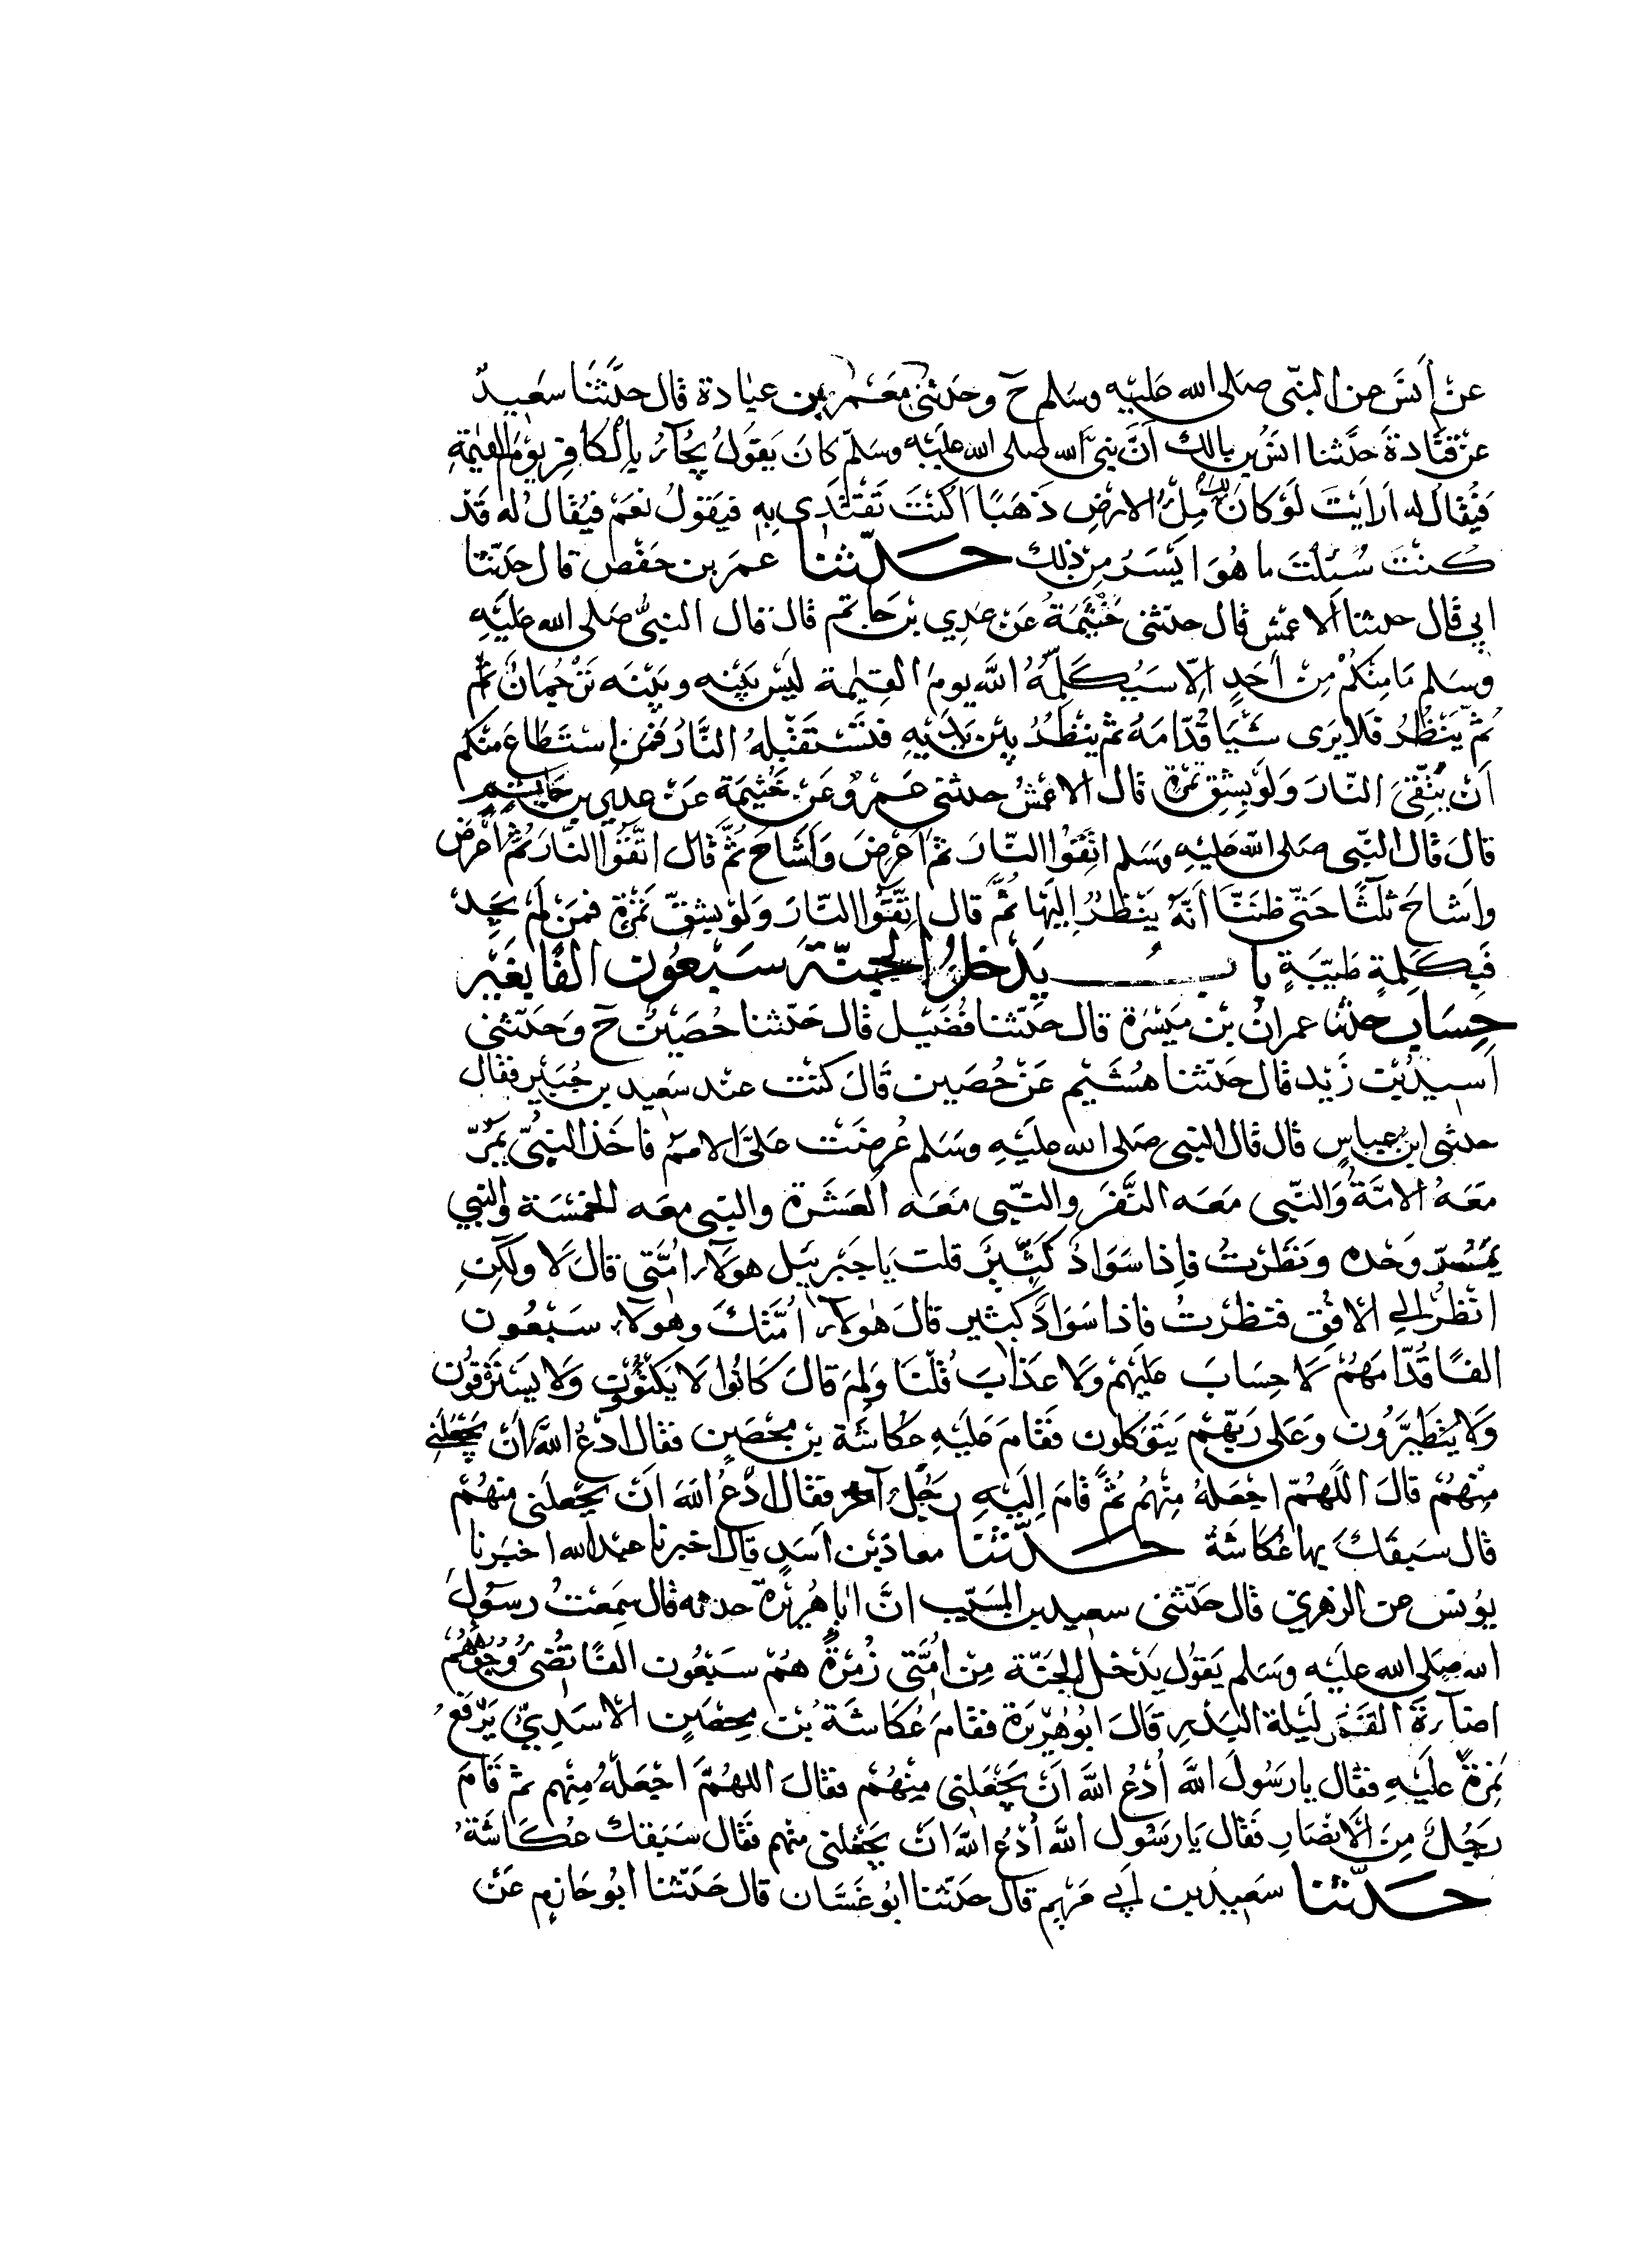 عن أنس عن النبي صلى الله عليه وسلم ح وحدثني معمر بن عبادة قال حدثنا سعيد
عن قتادة حدثنا انس بن مالك ان نبي الله صلى الله عليه وسلم كان يقول يجآء بالكافر يوم القيمة
فيقال له ارايت لو كان لك ملء الارض ذهبا اكنت تفتدي به فيقول نعم فيقال له قد
كنت سئلت ما هو ايسر من ذلك حدثنا عمر بن حفص قال حدثنا
ابي قال حدثنا الاعمش قال حدثني خيثمة عن عدي بن حاتم قال قال النبي صلى الله عليه
وسلم ما منكم من أحد الا سيكلمه الله يوم القيمة ليس بينه وبينه ترجمان ثم
ثم ينظر فلا يرى شيا قدامه ثم ينظر بين يديه فتستقبله النار فمن استطاع منكم
ان يتقي النار ولو بشق تمرة قال الاعمش حدثني عمرو عن خيثمة عن عدي بن حاتم
قال قال النبي صلى الله عليه وسلم اتقوا النار ثم اعرض واشاح ثم قال اتقوا النار ثم اعرض
واشاح ثلثا حتى ظننا أنه ينظر اليها ثم قال اتقوا النار ولو بشق تمرة فمن لم يجد
فبكلمة طيبة باب يدخل الجنة سبعون الفا بغير
حساب حدثنا عمران بن ميسرة قال حدثنا فضيل قال حدثنا حصين ح وحدثني
اسيد بن زيد قال حدثنا هشيم عن حصين قال كنت عند سعيد بن جبير فقال
حدثني ابن عباس قال قال النبي صلى الله عليه وسلم عرضت علي الامم فاخذ النبي يمر
معه الامة والنبي معه النفر والنبي معه العشرة والنبي معه الخمسة والنبي
يمر وحده ونظرت فاذا سواد كثير قلت يا جبريل هولآء امتي قال لا ولكن
انظر الي الافق فنظرت فاذا سواد كثير قال هولآء امتك وهولآء سبعون
الفا قدامهم لا حساب عليهم ولا عذاب قلت ولم قال كانوا لا يكتوون ولا يسترقون
ولا يتطيرون وعلى ربهم يتوكلون فقام عليه عكاشة بن محصن فقال ادع الله ان يجعلني
منهم قال اللهم اجعله منهم ثم قام اليه رجل آخر فقال ادع الله ان يجعلني منهم
قال سبقك بها عكاشة حدثنا معاذ بن اسد قال اخبرنا عبد الله اخبرنا
يونس عن الزهري قال حدثني سعيد بن المسيب ان ابا هريرة حدثه قال سمعت رسول
الله صلى الله عليه وسلم يقول يدخل الجنة من امتي زمرة هم سبعون الفا تضئ وجوههم
اضآءة القمر ليلة البدر قال ابو هريرة فقام عكاشة بن محصن الاسدي يرفع
نمرة عليه فقال يا رسول الله أدع الله ان يجعلني منهم فقال اللهم اجعله منهم ثم قام
رجل من الانصار فقال يا رسول الله أدع الله ان يجعلني منهم فقال سبقك عكاشة
حدثنا سعيد بن ابي مريم قال حدثنا ابو غسان قال حدثنا ابو حازم عن